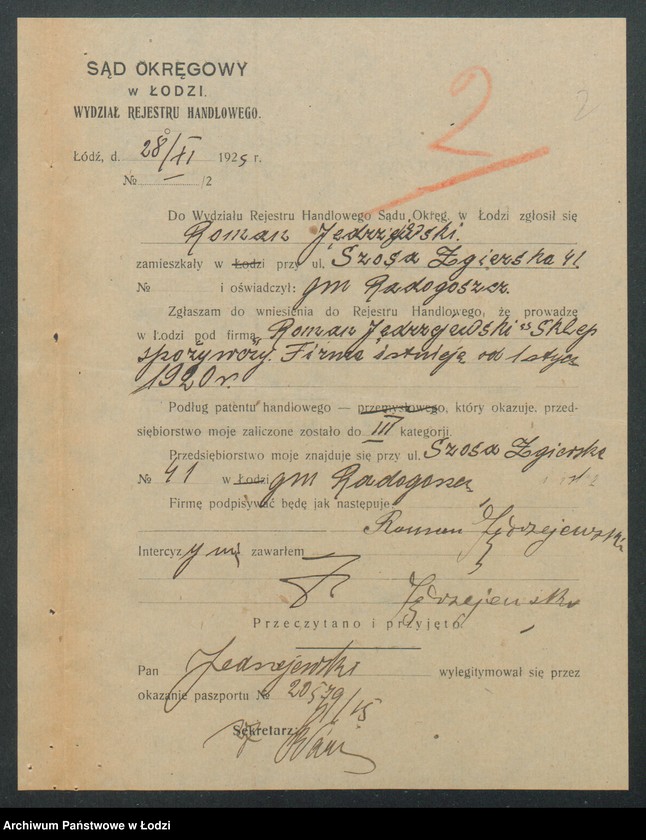 SĄD OKRĘGOWY
w ŁODZI.
WYDZIAŁ REJESTRU HANDLOWEGO.
2
2
Łódź, d. 28/XI 1925 r.
№ — /2
Do Wydziału Rejestru Handlowego Sądu Okręg. w Łodzi zgłosił się
Roman Jędrzejewski.
zamieszkały w Łodzi przy ul. Szosa Zgierska 41.
№ i oświadczył: gm Radogoszcz.
Zgłaszam do wniesienia do Rejestru Handlowego, że prowadzę
w Łodzi pod firmą Roman Jędrzejewski Sklep
spożywczy. Firma istnieje od 1 stycz
1920 r.
Podług patentu handlowego — przemysłowego, który okazuje, przed-
siębiorstwo moje zaliczone zostało do III kategorji.
Przedsiębiorstwo moje znajduje się przy ul. Szosa Zgierska
№ 41 w Łodzi gm Radogoszcz
Firmę podpisywać będę jak następuje
Roman Jędrzejewski
Intercyzy nie zawarłem
Jędrzejewski
Przeczytano i przyjęto
Pan Jędrzejewski wylegitymował się przez
okazanie paszportu №
Sekretarz:
Archiwum Państwowe w Łodzi